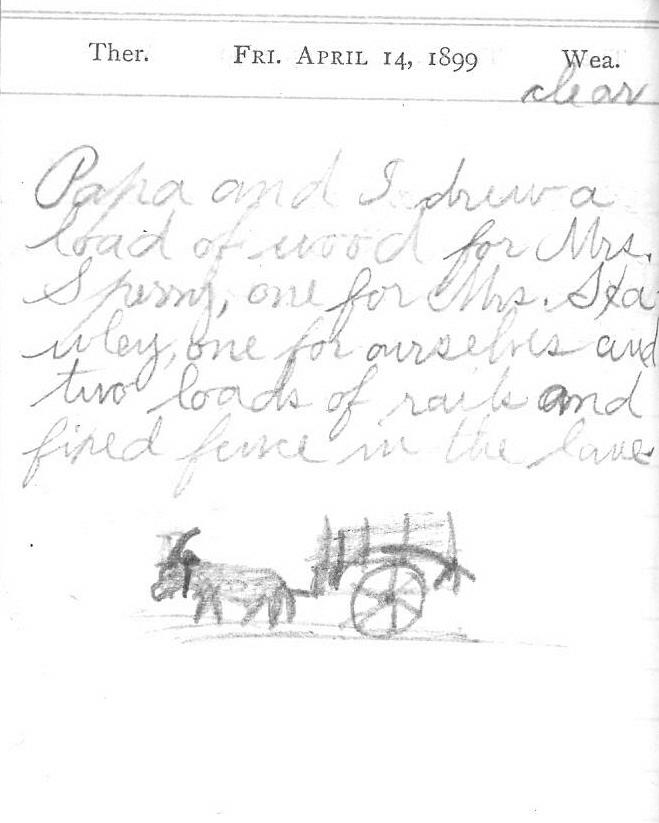 Ther. FRI. APRIL 14, 1899 Wea.
clear
Papa and I drew a
load of wood for Mrs.
Sperry, one for Mrs. Sta-
wley, one for ourselves and
two loads of rails and
fixed fence in the lane